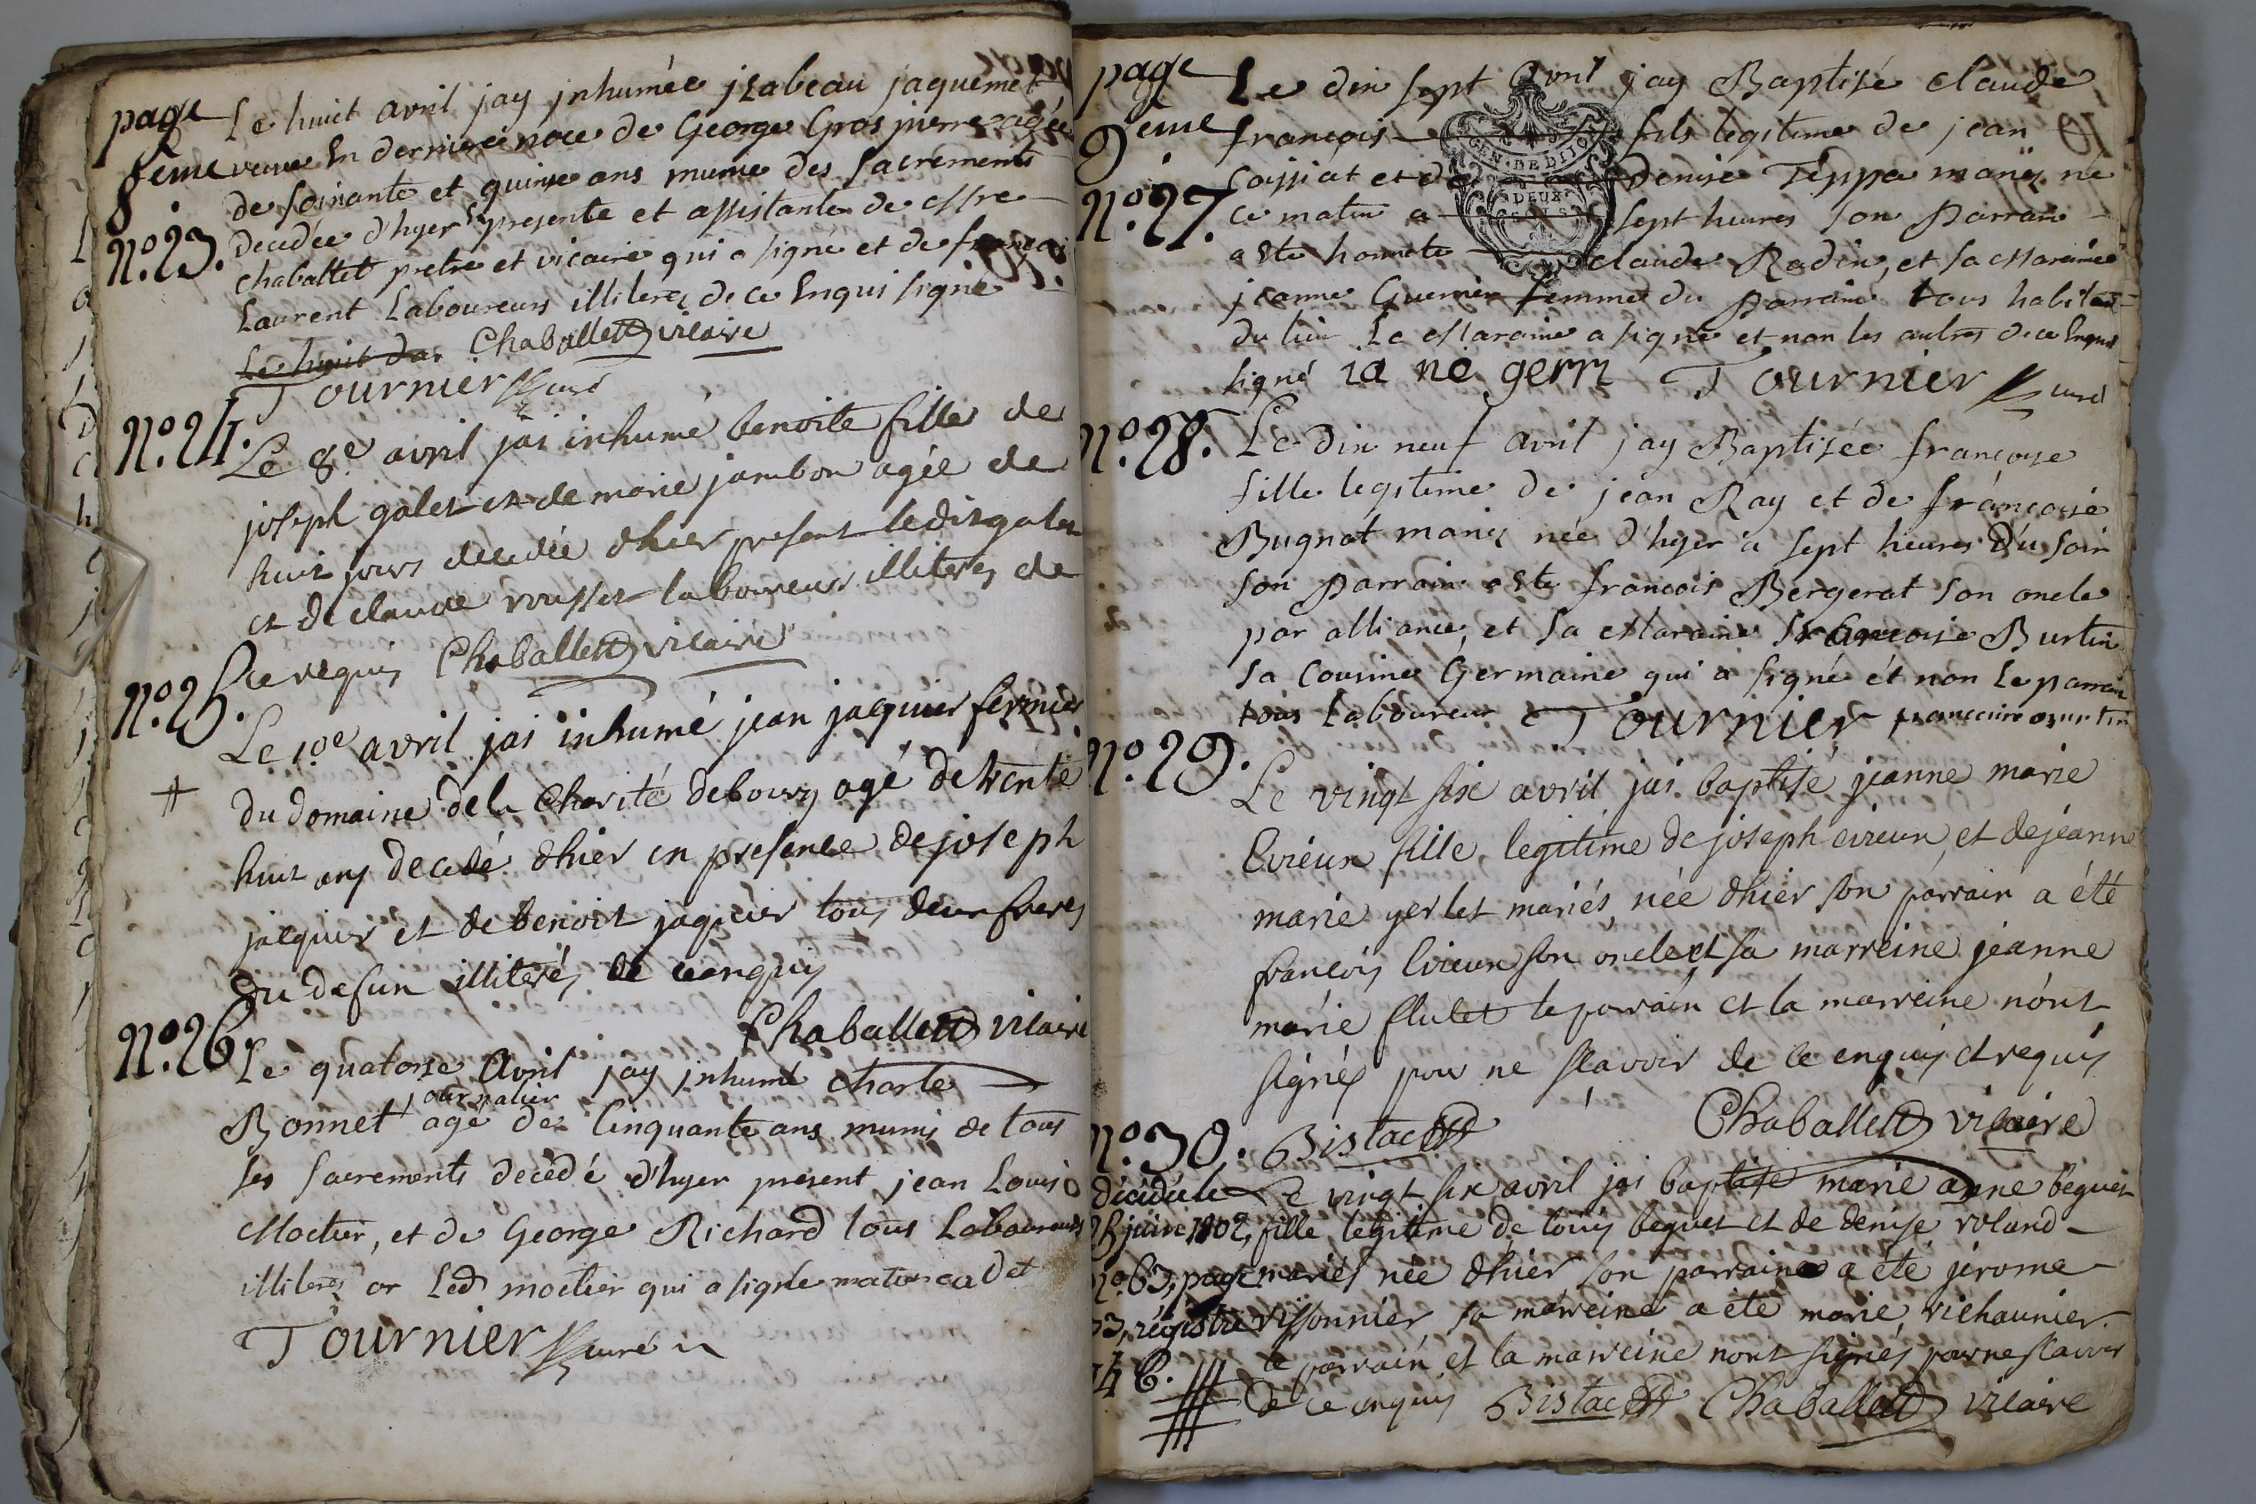 page
8eme
n.o 23.
Le huit avril jay jnhumée jzabeau jaquemet
veuve En derniere noce de George Gros pierre agée
de soixante et quinze ans munie des sacrements
decedée d'hyer presente et assistante de
chaballet pretre et vicaire qui a signé et de françois
Laurent Laboureurs illiterez de ce Enquis signé
Le huit da. Chaballet vicaire
Tournier curé
n.o 24.
Le 8e avril jai inhumé benoite fille de
joseph galet et de marie jambon agée de
huit jours decedée dhier present ledit galet
et de claude rousset laboureur illiterez de
ce requis Chaballet vicaire
n.o 25.
Le 10e avril jai inhumé jean jaquier fermier
du domaine de la Charité de bourg agé de trente
huit ans decedé dhier en presence de joseph
jacquier et de benoit jaquier tous deux freres
du defun illiterés de ce enquis
Chaballet vicaire
n.o 26.
Le quatorze Avril jay jnhumé charle
journalier
Bonnet agé de Cinquante ans munis de tous
les sacrements decedé d'hyer present jean Louis
Moctier, et de George Richard tous Laboureurs
illiterez or Led moctier qui a signé
Tournier curé
page
9eme
n.o 27.
Le dix sept Avril jay Baptisé claude
françois fils legitime de jean
GEN. DE DIJON
coissiat et de Denise Teppa mariez né
DEUX
SOLS
ce matin a sept heures son Parrain
a Ete honnete claude Rodin, et sa Maraine
jeanne Guerrier femme du Parrain tous habitans
du lieu La Maraine a signé et non les autres de ce Enquis
signé ia ne gerri Tournier curé
n.o 28.
Le dix neuf avril jay Baptisée françoise
fille legitime de jean Ray et de françoise
Bugnot mariez née d'hyer a sept heures Du soir
son Parrain a Ete françois Bergerat son oncle
par alliance, et sa Maraine françoise Burtin
sa Cousine Germaine qui a signé et non Le parrain
tous Laboureur Tournier
n.o 29.
Le vingt six avril jai baptisé jeanne marie
Evieux fille legitime de joseph evieux et de jeanne
marie yerlet mariés née dhier son parrain a été
françois Evieux son oncle et sa marreine jeanne
marie flulet le parrain et la marreine nont
signés pour ne scavoir de ce enquis et requis
Bistac Chaballet vicaire
n.o 30.
décédée le
28 juin 1802,
n.o 63, page
33, régistre
14 C.
Le vingt six avril jai baptisé marie anne beguet
fille legitime de louis beguet et de denise roland
mariés née dhier son parrain a été jerome
vissonnier sa marreine a été marie richaunier
le parrain et la marreine nont signés pour ne scavoir
de ce enquis Bistac Chaballet vicaire